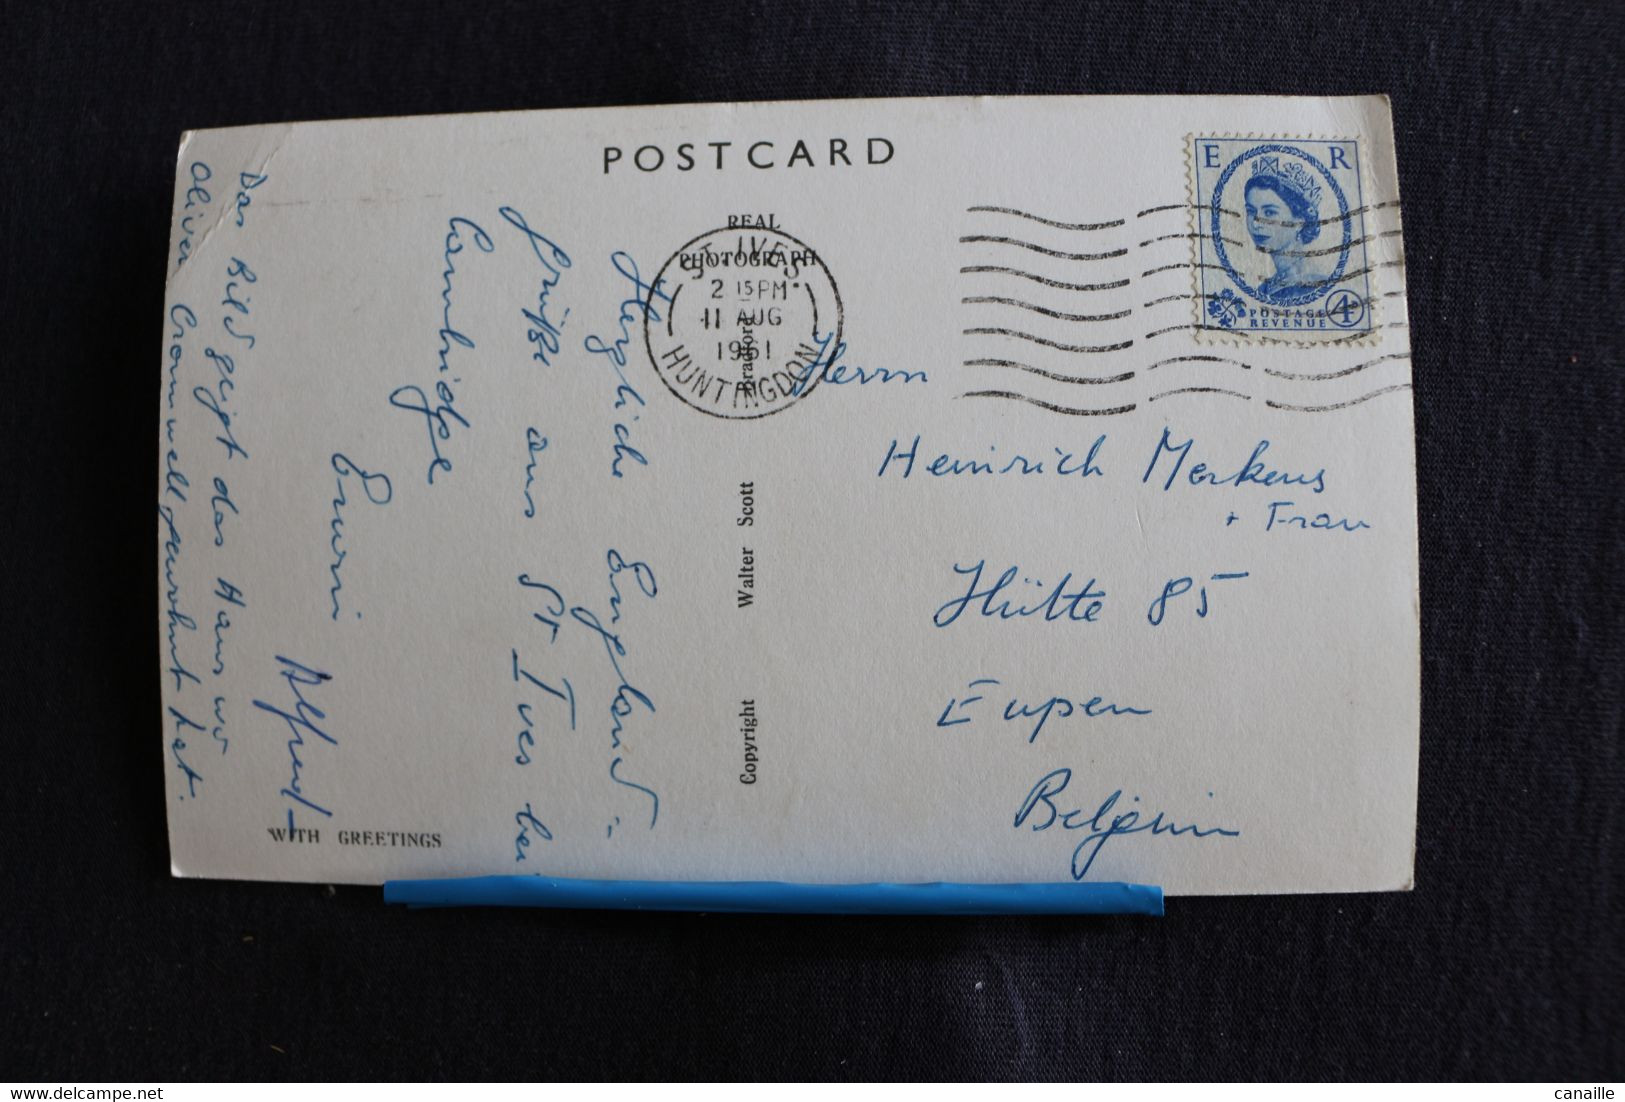 POSTCARD
REAL
PHOTOGRAPH
ST. IVES
2 15 PM
11 AUG
1961
HUNTINGDON
E R
POSTAGE
REVENUE
4D
Herzliche England-
Grüße aus St Ives bei
Cambridge
Erwin
Alfred
Das Bild zeigt das Haus wo
Oliver Cromwell gewohnt hat.
WITH GREETINGS
Copyright Walter Scott Bradford
Herrn
Heinrich Merkens
+ Frau
Hütte 85
Eupen
Belgium
canaille